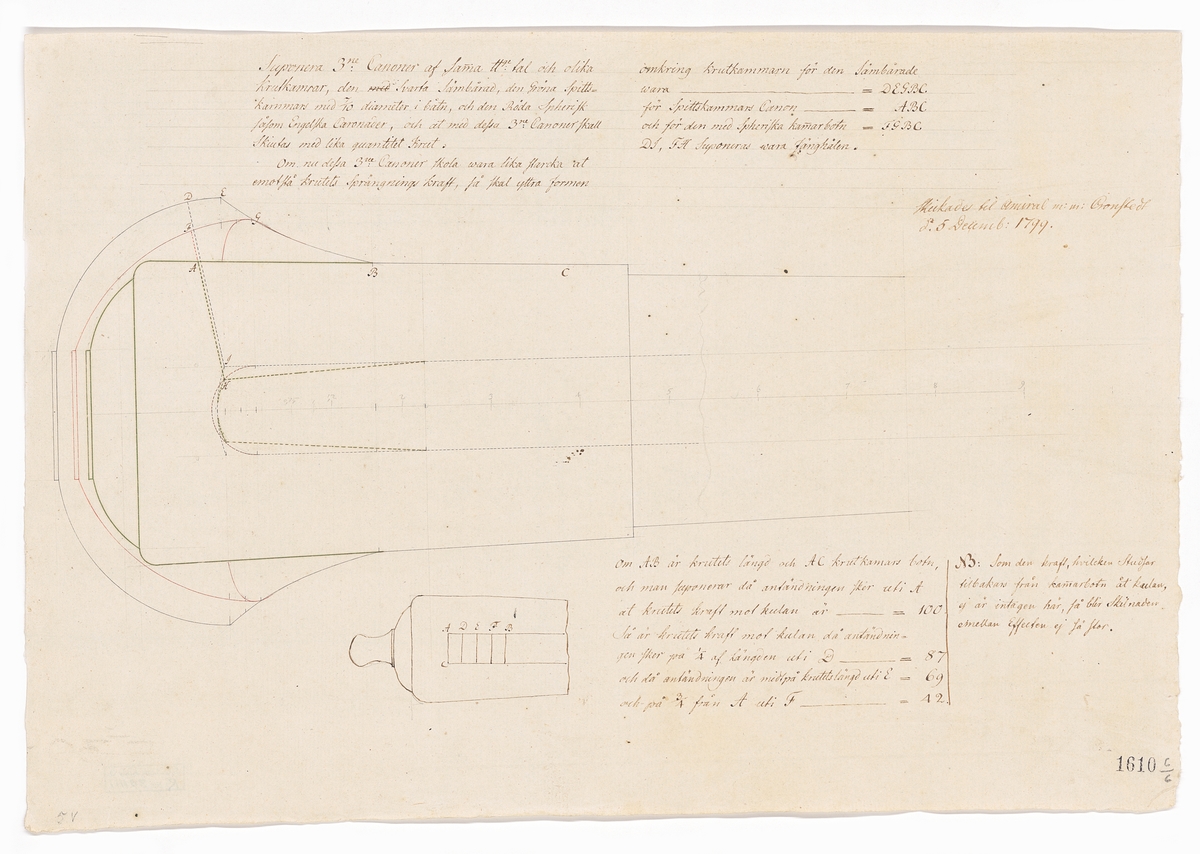 Suponera 3ne Canoner af Sama ttr tal och olika
krutkamrar, den med Svarta Jämbårad, den Gröna Spitts-
kammars med 1/10 diameter i båtn, och den Röda Spherisk
såsom Engelska Caronader, och at med dessa 3ne Canoner skall
skiutas med lika quantitet krut.
Om nu dessa 3ne Canoner skola wara lika starcka at
emotstå krutets Sprängnings kraft, så skal yttra formen
omkring krutkammarn för den Jämbårade
wara = DEGBC
för Spittkammars Canon = ABC
och för den med Spheriska kamarbotn = FGBC
DI, FH Suponeras wara fänghålen.
Skickades til Amiral m: m: Cronstedt
d. 5 Decemb: 1799.
D E
F G
A B C
Om AB är krutets längd och AC krutkamars botn,
och man suponerar då antändningen sker uti A
at krutets kraft mot kulan är = 100
Så är krutets kraft mot kulan då antändnin-
gen sker på 1/4 af längden uti D = 87
och då antändningen är midt på krutets längd uti E = 69
och på 3/4 från A uti F = 42
NB: Som den kraft, hvilcken Studsar
tilbakars från kamarbotn åt kulan,
ej är intagen här, så blir Skilnaden
emellan Effecten ej så stor.
A D E F B
C
1610 6/6